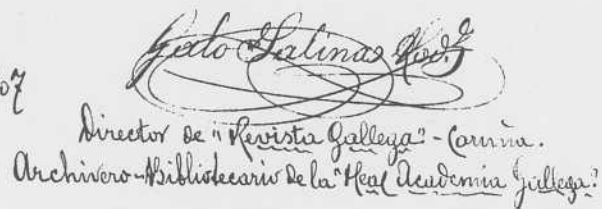 Galo Salinas Rod.z
07
Director de "Revista Gallega" - Coruña.
Archivero-Bibliotecario de la "Real Academia Gallega".